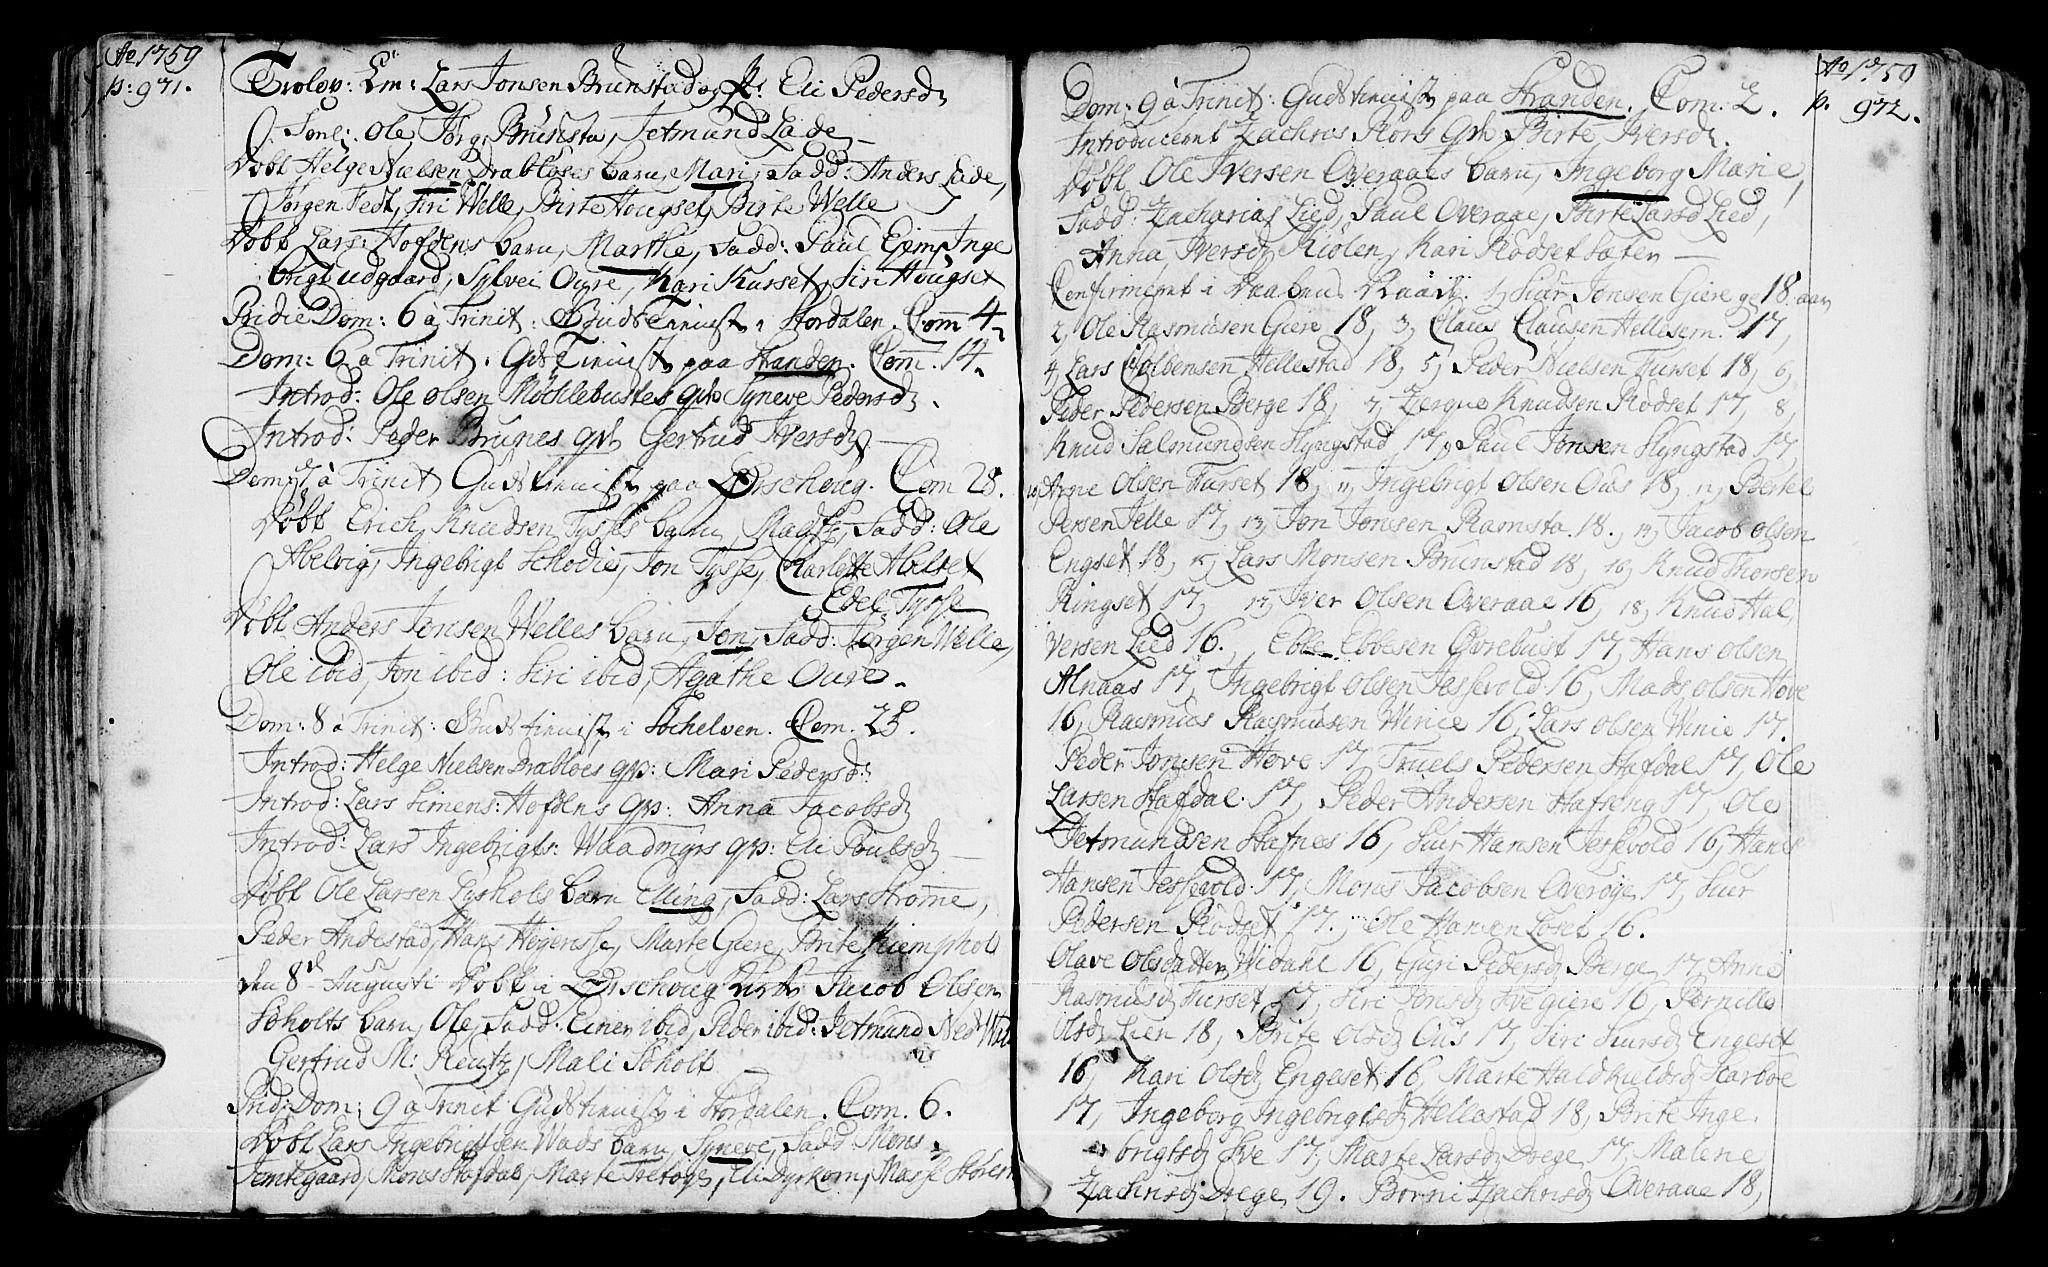 Ao 1759
p: 971.
Trolov: Em: Lars Jonsen Brunstad og P: Eli Pedersd
Sone: Ole Jørg: Brunsta, Jetmund Lade
Døbt Helge Nielsen Drabløses barn, Mari, Fadd: Anders Lade,
Jørgen Fedt, Siri Welle, Birte Hougset, Birte Welle
Døbt Lars: Hofdens barn, Marthe, Fadd: Paul Ejim, Inge
brigt udgaard, Sylvei Ovre, Kari Kurset, Siri Hougset
Pridie Dom: 6 a Trinit: Gudstienist i Stordalen. Com 4.
Dom: 6 a Trinit. Gudstienist paa Stranden. Com. 14.
Introd: Ole olsen Mochlebustes qvs Syneve Pedersd.
Introd: Peder Brunes qvs Gertrud Iversd
Dom 7 a Trinit Gudstienist paa Ørschoug. Com 28.
Døbt Erich Knudsen Tysses barn, Madsse, Fadd: Ole
Abelvig, Ingebrigt Schodie, Jon Tysse, Charlotte Abelset
Edel Tysse
Døbt Anders Jonsen Welles barn, Jon, Fadd: Jørgen Welle,
Ole ibid, Jon ibid: Siri ibid, Agathe Oure.
Dom: 8 a Trinit: Gudstienist i Søchelven. Com. 25.
Introd: Helge Nielsen Drabløes qvs: Mari Pedersd:
Introd: Lars Simens: Hofdens qvs: Anna Jacobsd
Introd: Lars Ingebrigts: Waadmyrs qvs: Eli Poulsd
Døbt Ole Larsen Lyshols barn Elling, Fadd: Lars Strømme,
Peder Andestad, Hans Høgensse, Marte Giere, Brite Kiempholt
den 8de Augusti Døbt i Ørschoug Kirke Jacob Olsen
Søholts barn, Ole, Fadd: Einer ibid, Peder ibid: Jetmund Ned
Gertrud M: Reutz, Mali Søholt
Prid: Dom: 9 a Trinit Gudstienist i Stordalen. Com. 6.
Døbt Lars Ingebrigtsen Wads barn, Syneve, Fadd Mons
Jemtegaard, Mons Stafdal, Marte, Eli Dyrkorn, Masse
Ao 1759
p. 972.
Dom: 9 a Trinit: Gudstienist paa Stranden. Com: 2.
Introducernt Zachris Rons qvs Birte Iversd.
Døbt Ole Iversen Overaaes barn, Ingeborg Marie,
Fadd: Zacharias Lied, Paul Overaae, Birte Larsd Lied,
Anna Iversd Kiølen, Kari Rødset Sæter
Confirmernt i Daabens Naade. 1, Siur Jonsen Giere ge 18. aar
2, Ole Rasmusen Giere 18, 3, Claus Clausen Hellesem. 17,
4, Lars Colbensen Hellestad 18, 5, Peder Nielsen Furset 18, 6,
Peder Pedersen Berge 18, 7, Zergue Knudsen Rødset 17, 8,
Knud Salmundsen Slyngstad 17, 9, Paul Jonsen Slyngstad 17,
10, Arne Olsen Furset 18, 11, Ingebrigt olsen Ous 18, 12, Bertel
Persen Velle 17, 13, Jon Jonsen Ramsta 18., 14, Jacob olsen
Engset 18, 15, Lars Monsen Brunstad 18, 16, Knud Thorsen
Ringset 17, 17, Iver Olsen Overaae 16, 18, Knud Hal
versen Lied 16., Ebbe Ebbesen Øvrebust 17, Hans olsen
Alnaas 17, Ingebrigt olsen Jessevold 16, Mads olsen Hove
16, Rasmus Rasmusen Winie 16, Lars olsen Winie 17.
Peder Jonsen Hove 17, Truels Pedersen Stafdal 17, Ole
Larsen Stafdal. 17, Peder Andersen Stafseng 17, Ole
Jetmundsen Stafnes 16, Siur Hansen Jessevold 16, Hans
Hansen Jessevold. 17, Mons Jacobsen Overøye 17, Siur
Pedersen Rødset 17., Ole Hansen Løset 16.
Olave olsdatter Widahl 16, Guri Pedersd Berge 17, Anne
Rasmusd Furset 17, Siri Jonsd Svegiere 16, Pernille
olsd Lien 18, Brite olsd Ous 17, Siri Siursd Engeset
16, Kari olsd Engeset 16, Marte Haldkieldsd Skarboe
17, Ingeborg Ingebrigtsd Hellestad 18, Brite Inge
brigtsd Sve 17, Marte Larsd Drege 17, Malene
Zachrisd Drege 19. Børni Zachrisd Overaae 18,